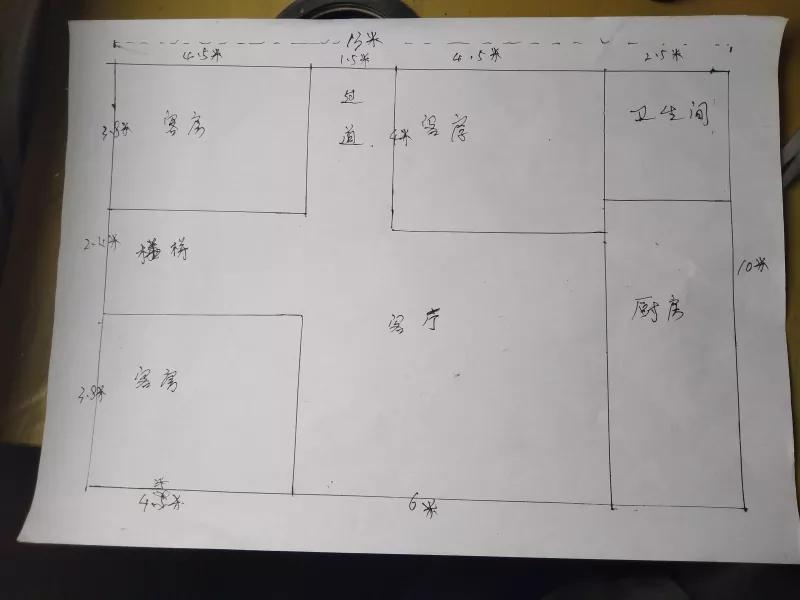 13米
4.5米 1.5米 4.5米 2.5米
3.8米 客房 过道 4米 客房 卫生间
2.4米 楼梯
10米
客厅 厨房
3.8米 客房
4.5米 6米